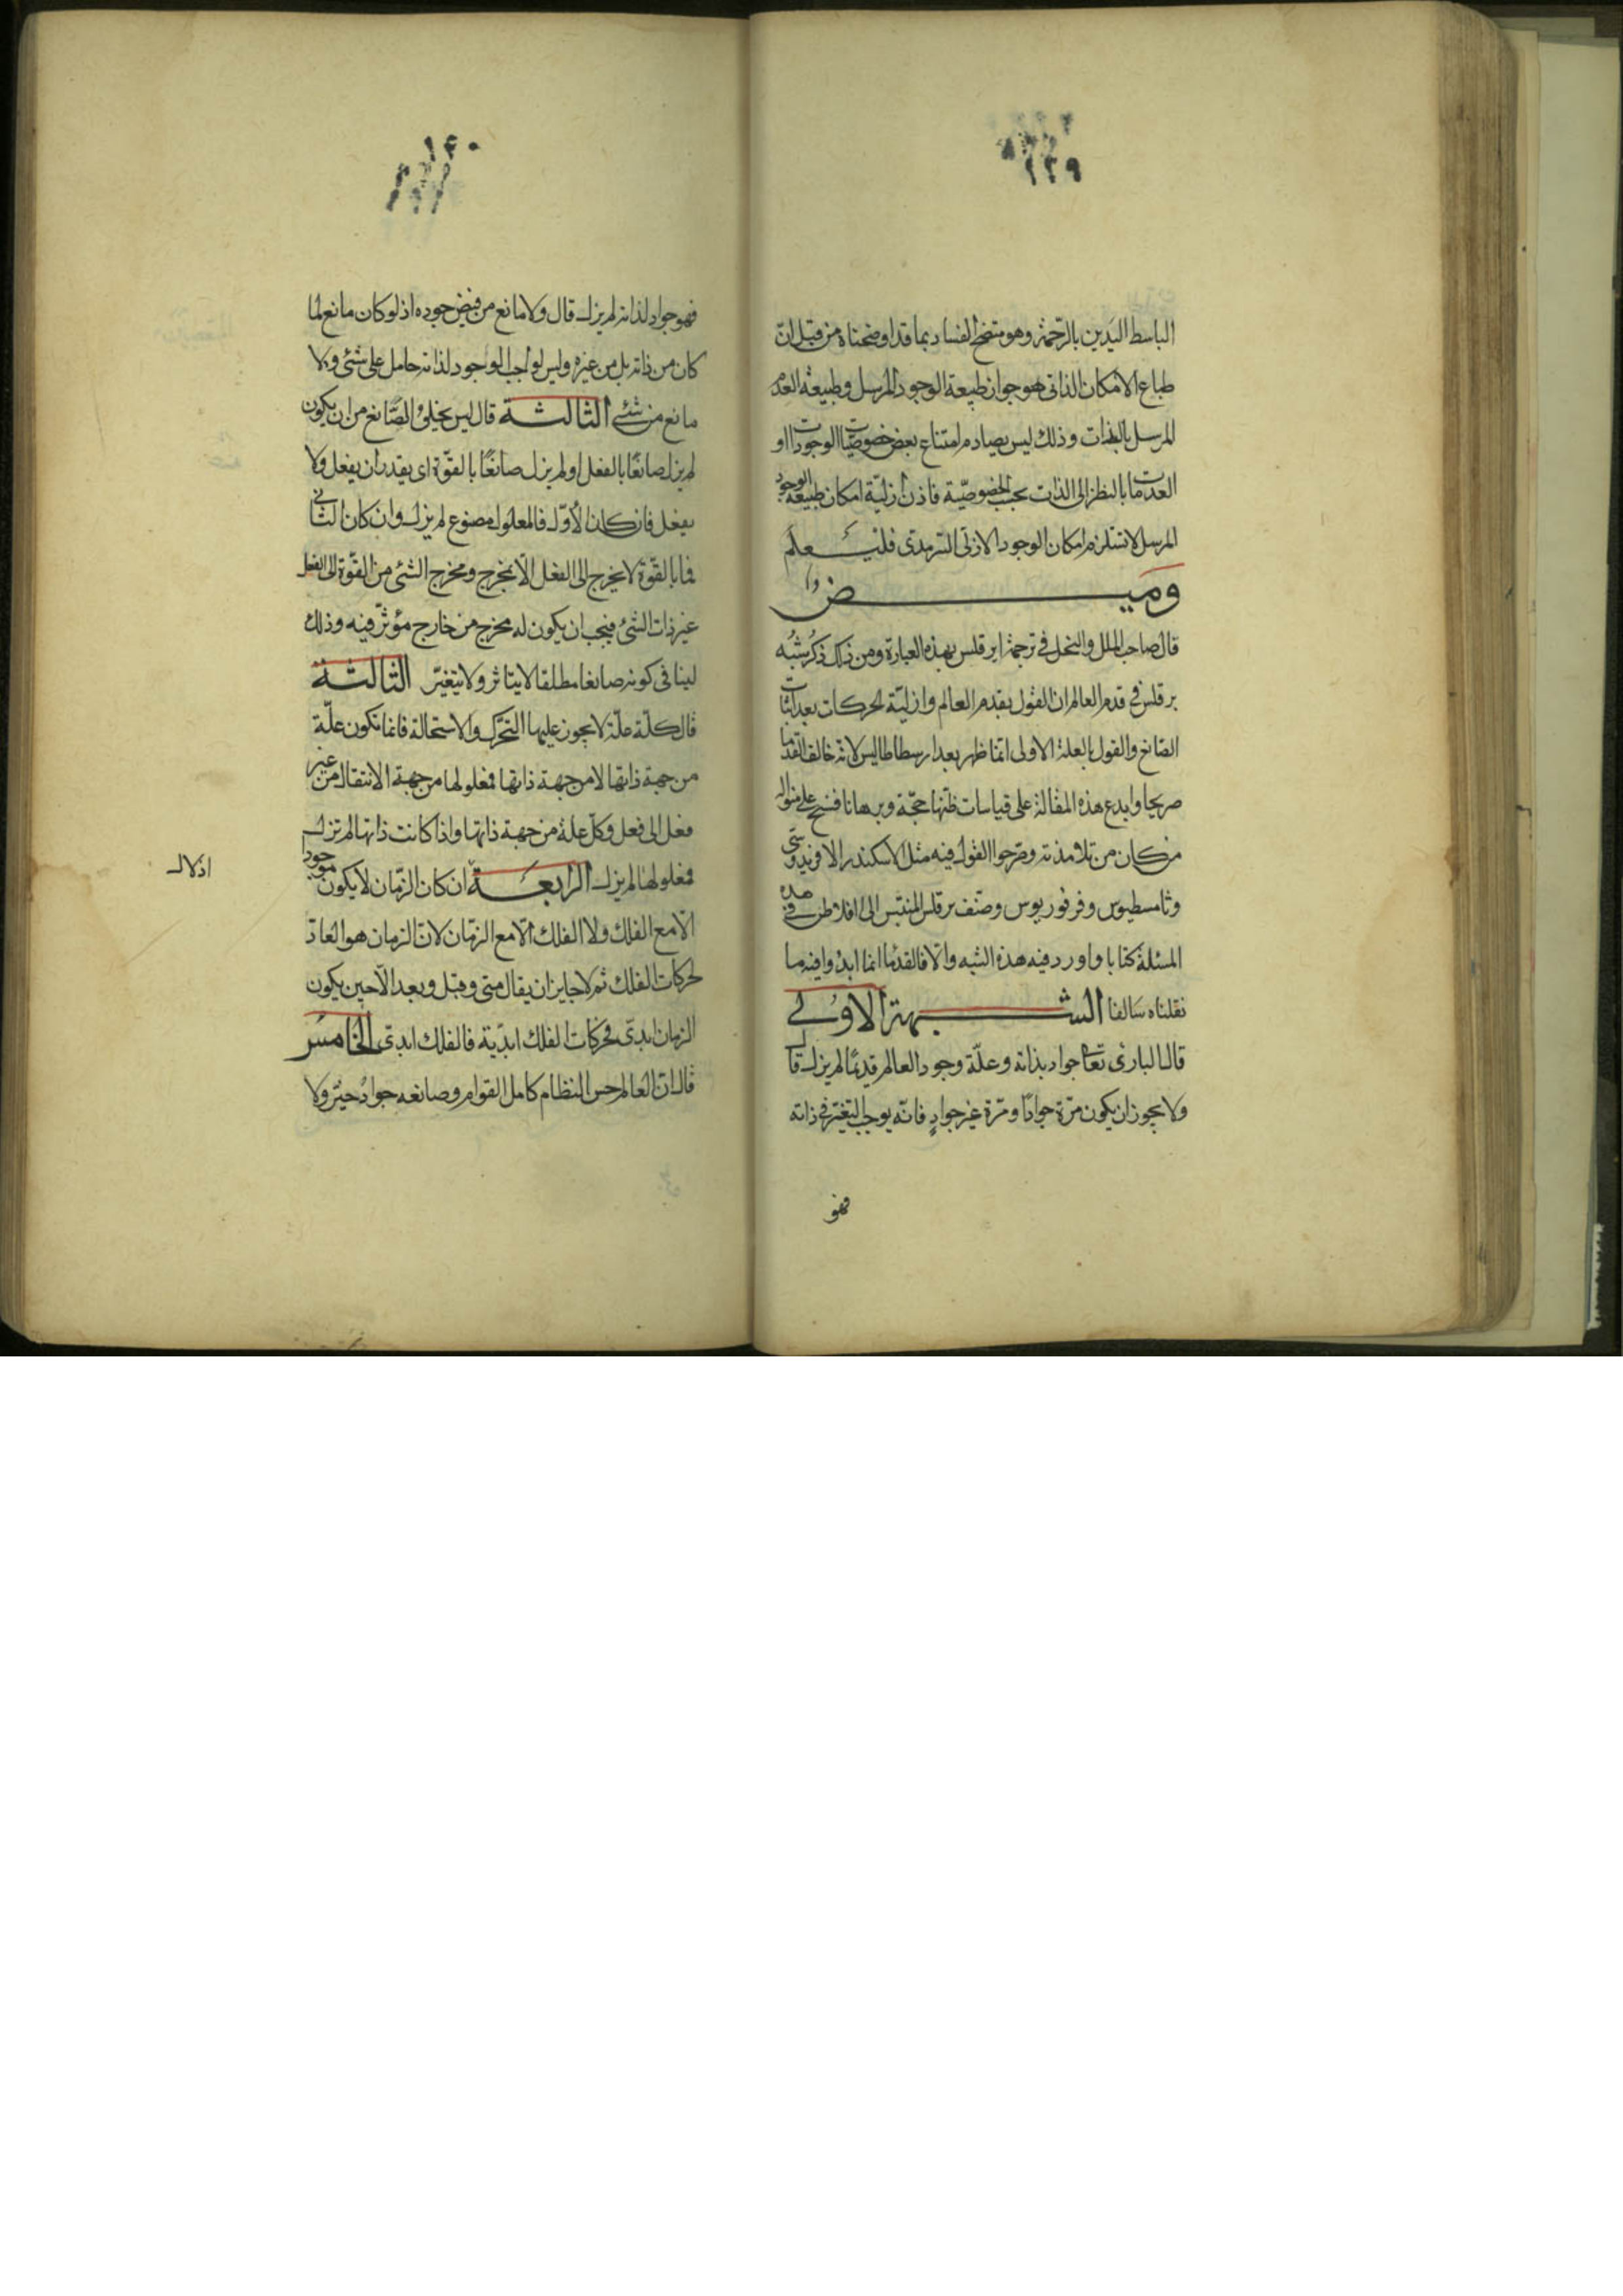 ١٣٩
الباسط اليدين بالرّحمة وهو متضح الفساد بما قد اوضحناه من قبل انّ
طباع الامكان الذاتى هو جواز طبيعة الوجود المرسل وطبيعة العدم
المرسل بالذات وذلك ليس يصادم امتناع بعض خصوصيّات الوجودات او
العدمات ما بالنظر الى الذات بحسب الخصوصيّة فاذن ازليّة امكان طبيعة الوجود
المرسل لا تستلزم امكان الوجود الازلى السّرمدى فليعلم
وميض
قال صاحب الملل والنحل فى ترجمة ابرقلس بهذه العبارة ومن ذلك ذكر شبه
برقلس فى قدم العالم ان القول بقدم العالم وازليّة الحركات بعد اثبات
الصّانع والقول بالعلة الاولى انّما ظهر بعد ارسطاطاليس لانّه خالف القدما
صريحا وابدع هذه المقالة على قياسات ظنّها حجّة وبرهانا فنسج على منواله
من كان من تلامذته وصرحوا القول فيه مثل الاسكندر الافريدوسى
وثامسطيوس وفرفوريوس وصنّف برقلس المنتسب الى افلاطن فى هذه
المسئلة كتابا واورد فيه هذه الشبه والّا فالقدما انما ابدوا فيه ما
نقلناه سالفا الشبهة الاولى
قال البارى تعا جواد بذاته وعلّة وجود العالم قديمًا لم يزل قال
ولا يجوز ان يكون مرّة جوادًا ومرّة غير جوادٍ فانّه يوجب التغيّر فى ذاته
فهو
١٤٠
فهو جواد لذاته لم يزل قال ولا مانع من فيض جوده اذ لو كان مانع لما
كان من ذاته بل من غيره وليس لواجب الوجود لذاته حامل على شئى ولا
مانع من شئى الثالثة قال ليس يخلو الصّانع من ان يكون
لم يزل صانعًا بالفعل او لم يزل صانعًا بالقوّة اى يقدر ان يفعل ولا
يفعل فان كان الأوّل فالمعلول مصنوع لم يزل وان كان الثانى
فما بالقوّة لا يخرج الى الفعل الّا بمخرج ومخرج الشئ من القوّة الى الفعل
غير ذات الشئ فيجب ان يكون له مخرج من خارج مؤثّر فيه وذلك
ينافى كونه صانعا مطلقا لا يتاثر ولا يتغيّر الثالثة
قال كلّ علّة لا يجوز عليها التحّرك والاستحالة فانما تكون علّة
من جهة ذاتها لا من جهة ذاتها فمعلولها من جهة الانتقال من غير
فعل الى فعل وكلّ علة من جهة ذاتها واذا كانت ذاتها لم تزل
فمعلولها لم يزل الرابعة ان كان الزّمان لا يكون موجودا
الّا مع الفلك ولا الفلك الّا مع الزّمان لانّ الزمان هو العادّ
لحركات الفلك ثم لا جايز ان يقال متى وقبل وبعد الّا حين يكون
الزمان ابدىّ فحركات الفلك ابديّة فالفلك ابدىّ الخامس
قال انّ العالم حسن النظام كامل القوام وصانعه جوادٌ خيّر ولا